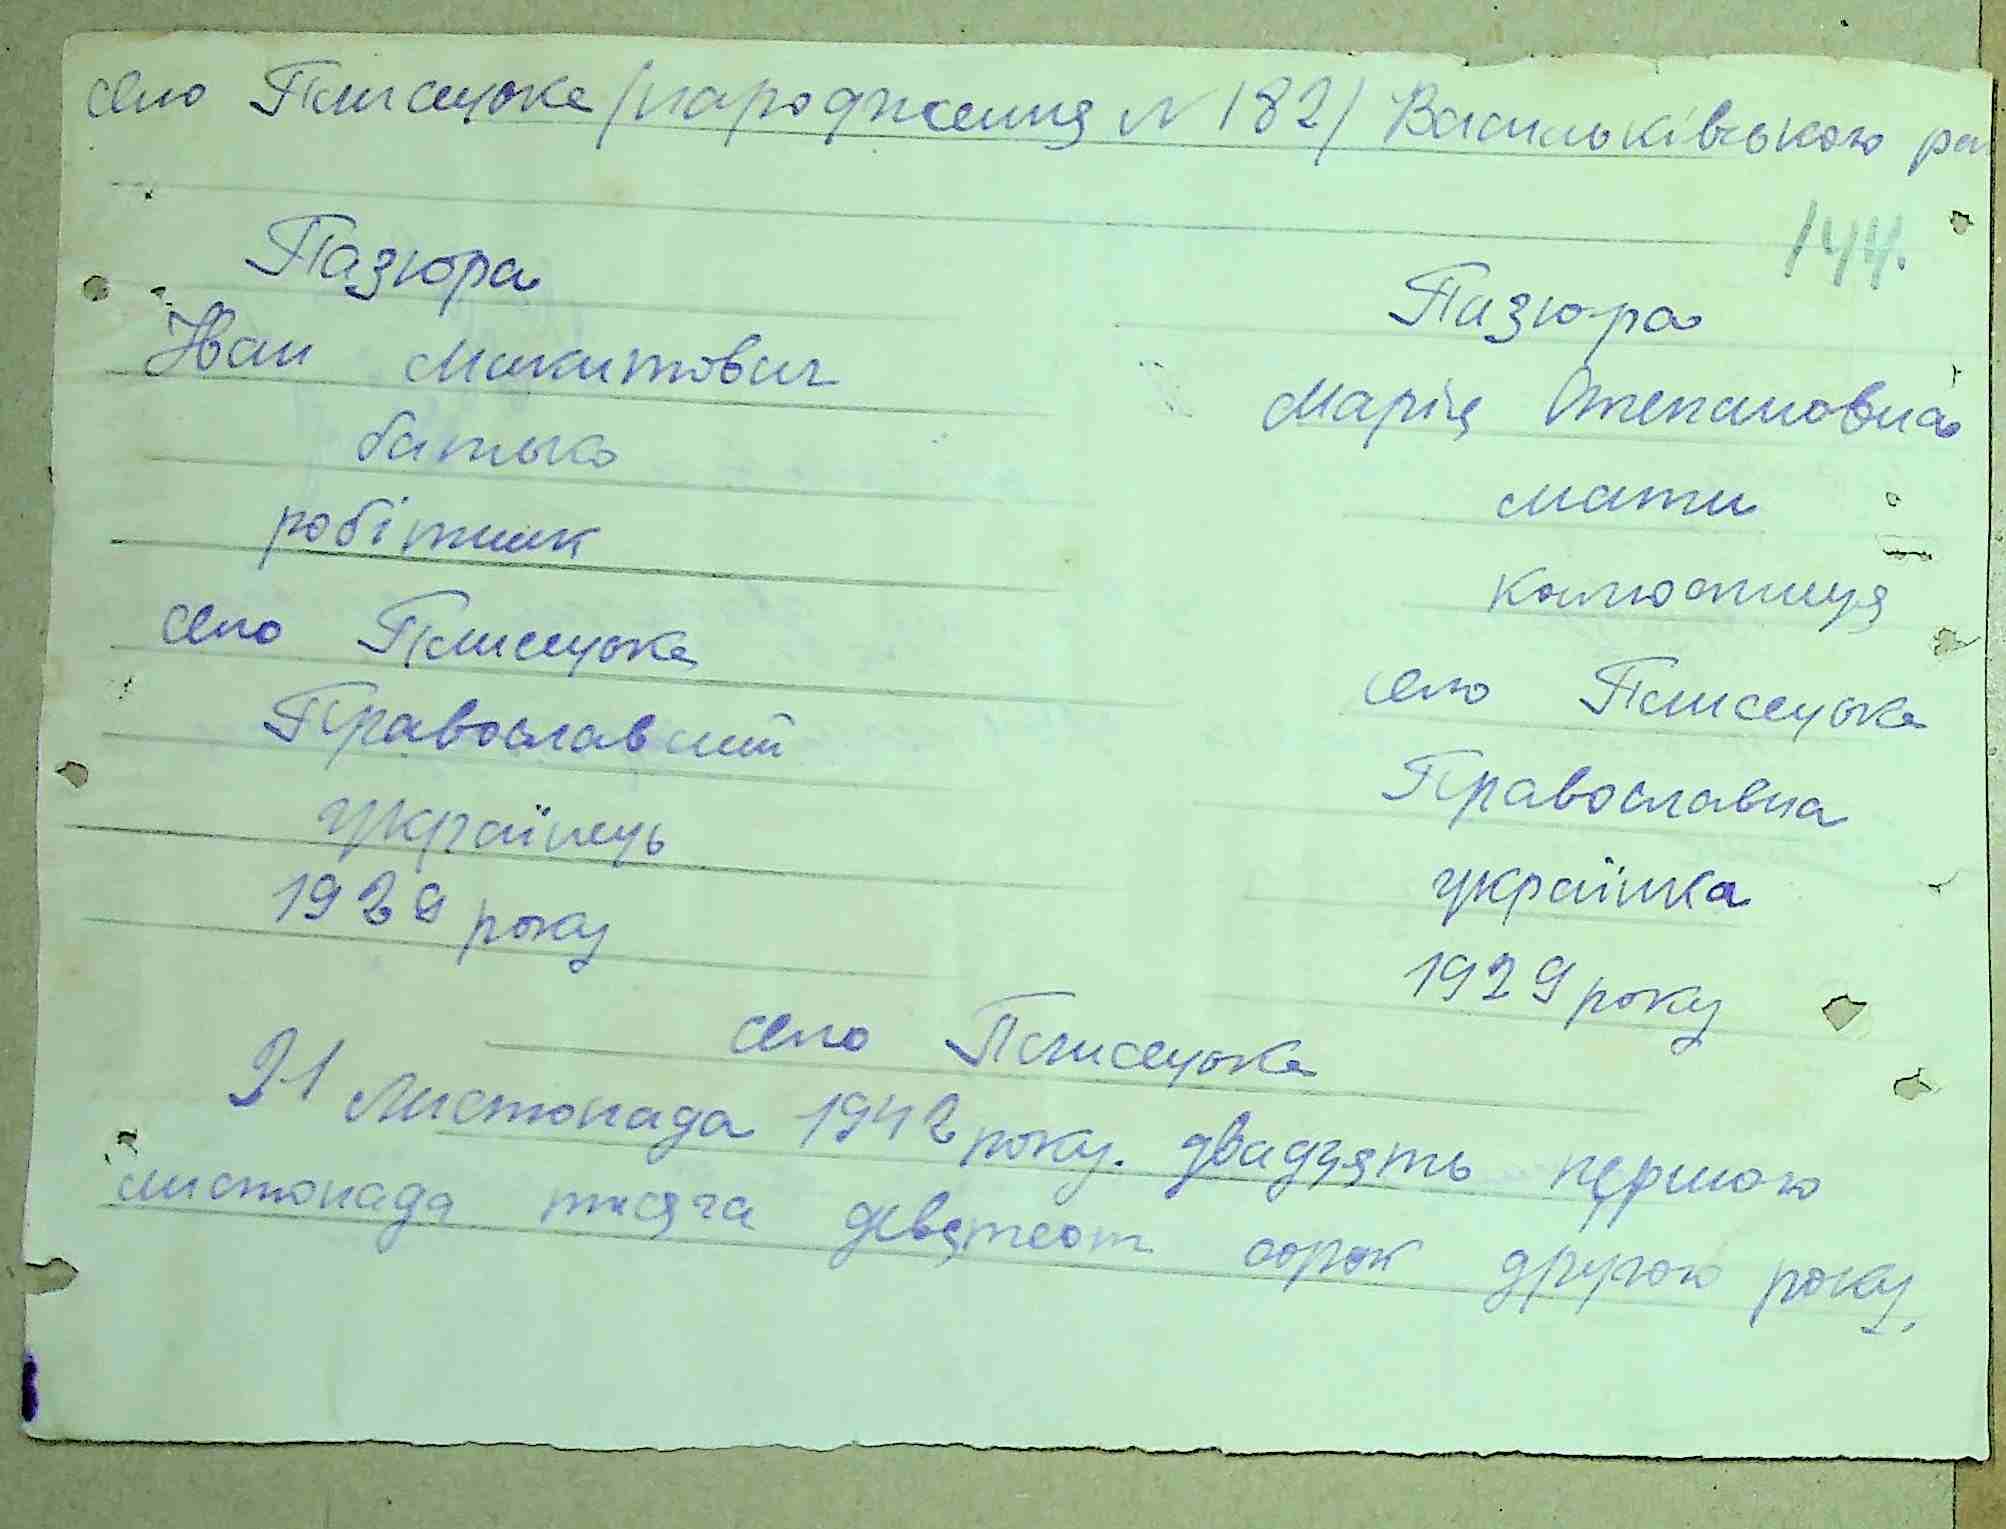 село Плисецьке /народження N 182/ Васильківського ра
144.
Пазюра
Іван Микитович
батько
робітник
село Плисецьке
Православний
українець
1929 року
Пазюра
Марія Степановна
мати
колгоспниця
село Плисецьке
Православна
українка
1929 року
село Плисецьке
21 Листопада 1942 року. двадцять першого
листопада тисяча девятсот сорок другого року.